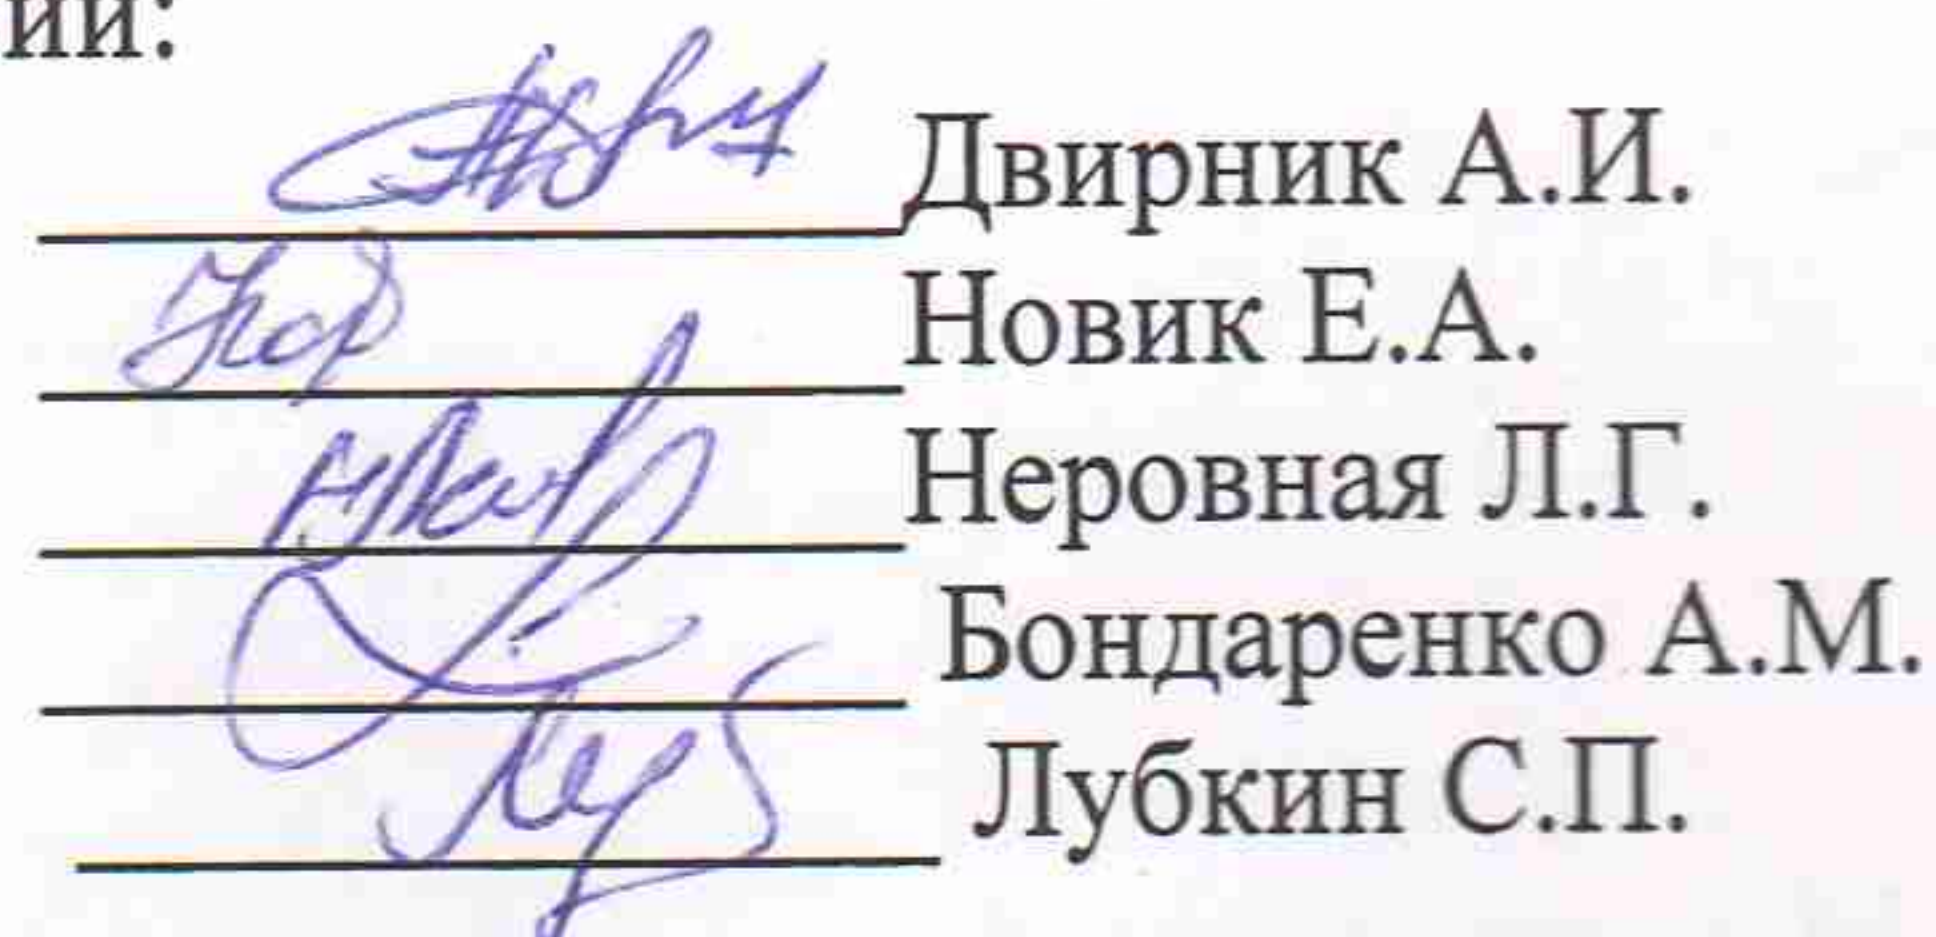 ии:
Двирник А.И.
Новик Е.А.
Неровная Л.Г.
Бондаренко А.М.
Лубкин С.П.